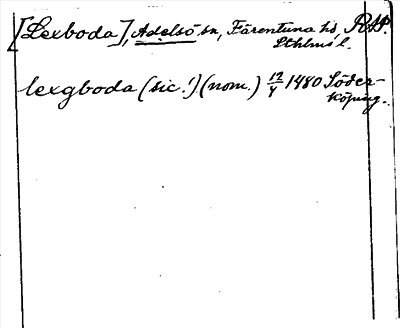 [Lexboda], Adelsö sn, Färentuna hd, RAP.
Sthlms l.
lexgboda (sic!) (nom.) 12/4 1480 Söder-
köping.